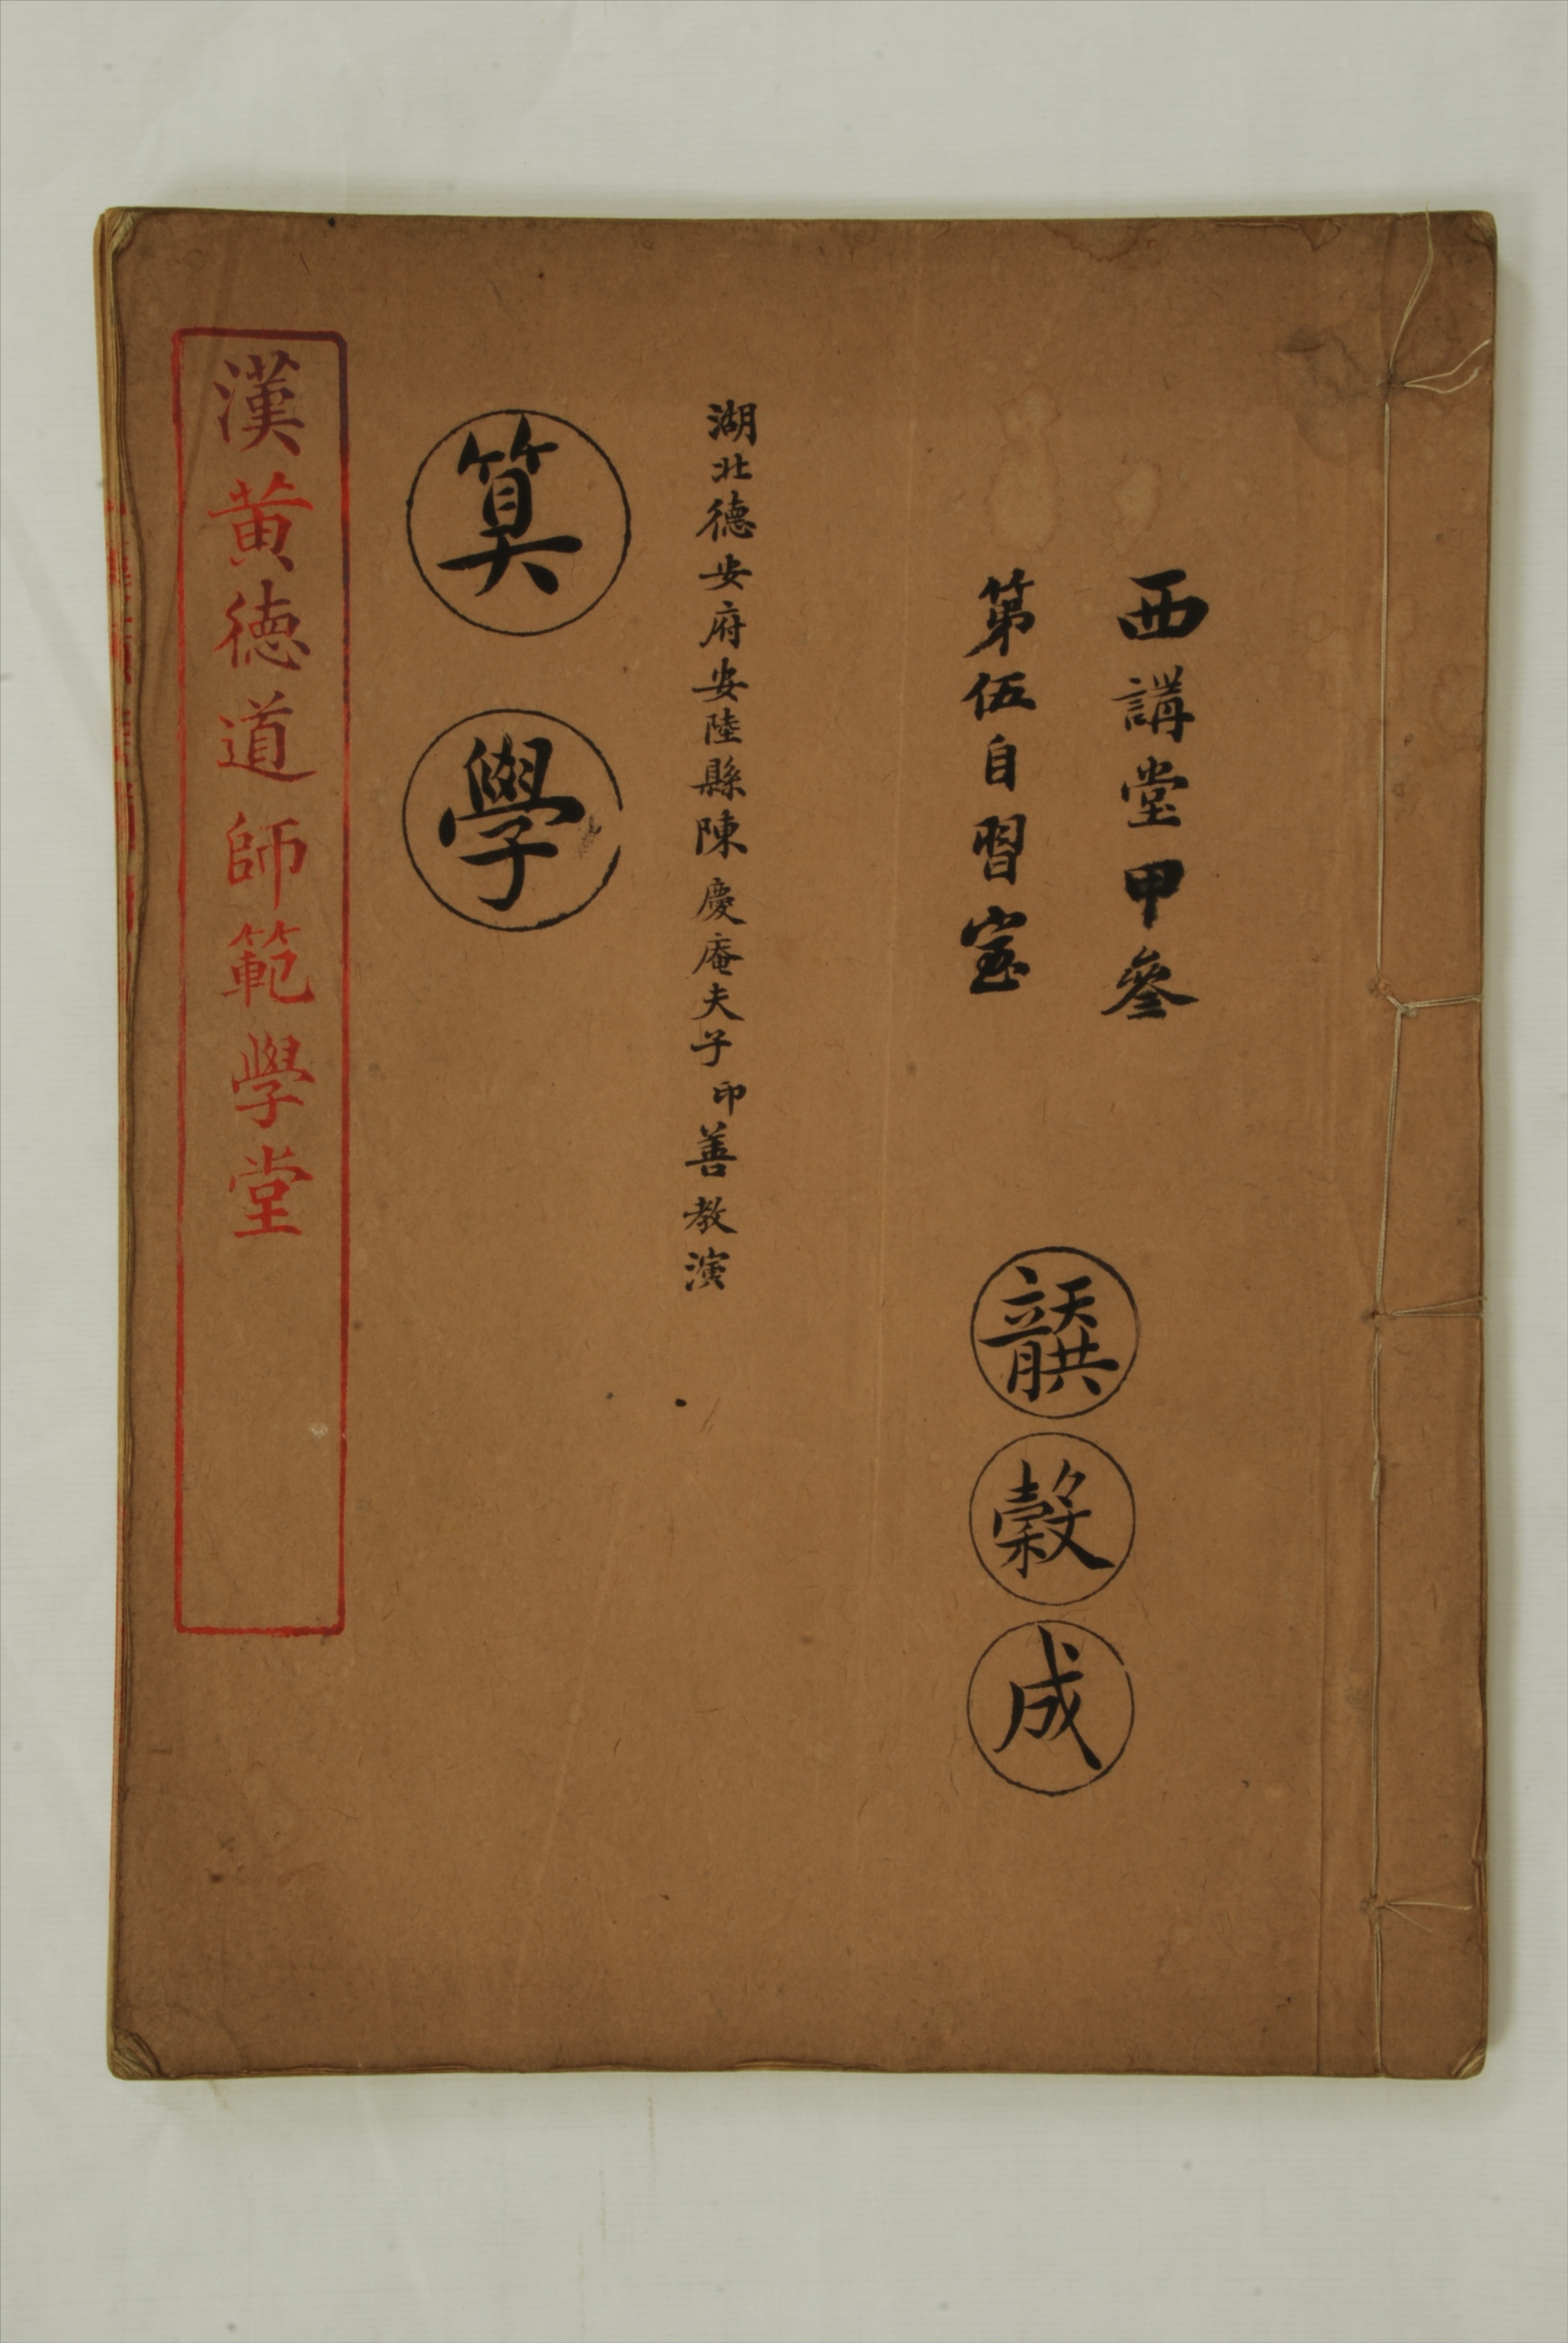 西講堂甲參
第伍自習室
龔榖成
湖北德安府安陸縣陳慶庵夫子印善教演
算學
漢黃德道師範學堂